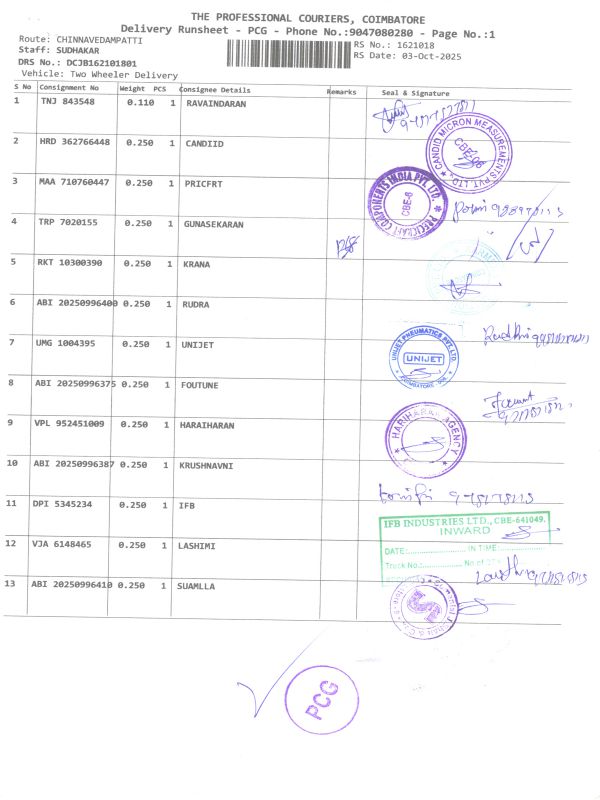 THE PROFESSIONAL COURIERS, COIMBATORE
Delivery Runsheet - PCG - Phone No.:9047080280 - Page No.:1
Route: CHINNAVEDAMPATTI
Staff: SUDHAKAR
DRS No.: DCJB162101801
Vehicle: Two Wheeler Delivery
RS No.: 1621018
RS Date: 03-Oct-2025
S No Consignment No Weight PCS Consignee Details Remarks Seal & Signature
1 TNJ 843548 0.110 1 RAVAINDARAN
2 HRD 362766448 0.250 1 CANDIID
CANDID MICRON MEASUREMENTS PVT. LTD. CBE-06
3 MAA 710760447 0.250 1 PRICFRT
PRECICRAFT COMPONENTS INDIA PVT. LTD. CBE-6
4 TRP 7020155 0.250 1 GUNASEKARAN
5 RKT 10300390 0.250 1 KRANA
6 ABI 20250996400 0.250 1 RUDRA
7 UMG 1004395 0.250 1 UNIJET
UNIJET PNEUMATICS PVT. LTD.
UNIJET
8 ABI 20250996375 0.250 1 FOUTUNE
9 VPL 952451009 0.250 1 HARAIHARAN
HARIHARAN AGENCY
10 ABI 20250996387 0.250 1 KRUSHNAVNI
11 DPI 5345234 0.250 1 IFB
IFB INDUSTRIES LTD., CBE-641049.
INWARD
DATE: IN TIME:
Truck No.: No of
12 VJA 6148465 0.250 1 LASHIMI
13 ABI 20250996410 0.250 1 SUAMLLA
PCG